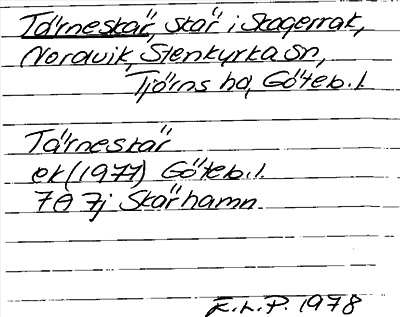 Tärneskär, skär i Skagerrak,
Nordvik, Stenkyrka sn,
Tjörns hd, Göteb. l.
Tärneskär
ek (1977) Göteb. l.
7A 7j Skärhamn
E.L.P. 1978